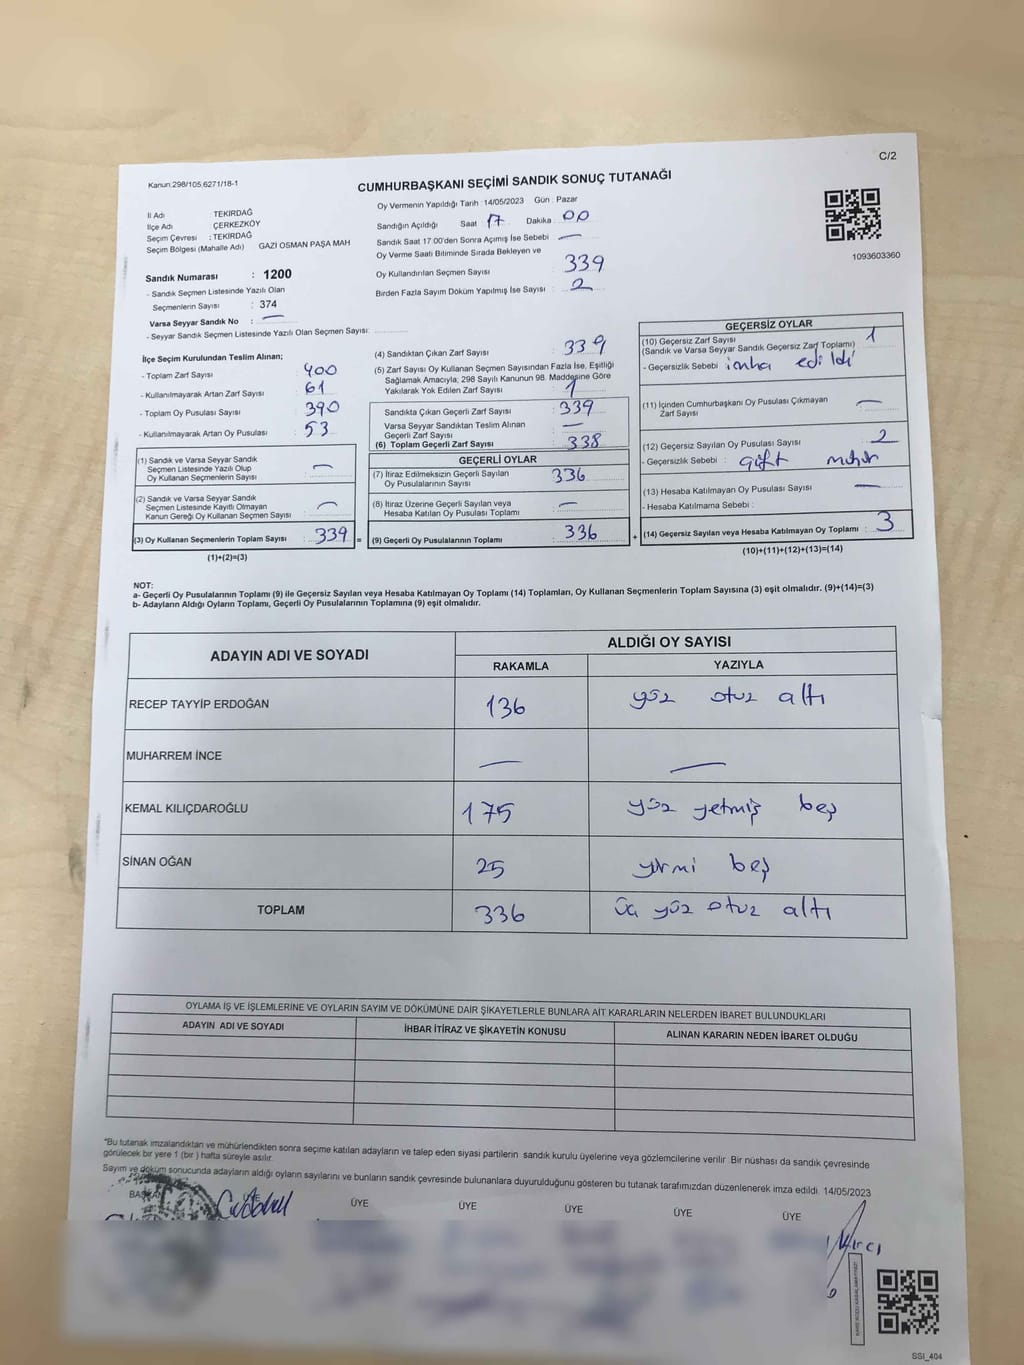 C/2
Kanun:298/105.6271/18-1
CUMHURBAŞKANI SEÇİMİ SANDIK SONUÇ TUTANAĞI
İl Adı TEKİRDAĞ
İlçe Adı ÇERKEZKÖY
Seçim Çevresi : TEKİRDAĞ
Seçim Bölgesi (Mahalle Adı) GAZİ OSMAN PAŞA MAH
Sandık Numarası : 1200
- Sandık Seçmen Listesinde Yazılı Olan
Seçmenlerin Sayısı : 374
Varsa Seyyar Sandık No : —
- Seyyar Sandık Seçmen Listesinde Yazılı Olan Seçmen Sayısı:
Oy Vermenin Yapıldığı Tarih :14/05/2023 Gün : Pazar
Sandığın Açıldığı Saat 17 Dakika : 00
Sandık Saat 17.00'den Sonra Açılmış İse Sebebi —
Oy Verme Saati Bitiminde Sırada Bekleyen ve
Oy Kullandırılan Seçmen Sayısı 339
Birden Fazla Sayım Döküm Yapılmış İse Sayısı : 2
1093603360
İlçe Seçim Kurulundan Teslim Alınan;
- Toplam Zarf Sayısı : 400
- Kullanılmayarak Artan Zarf Sayısı : 61
- Toplam Oy Pusulası Sayısı : 390
- Kullanılmayarak Artan Oy Pusulası : 53
(1) Sandık ve Varsa Seyyar Sandık
Seçmen Listesinde Yazılı Olup
Oy Kullanan Seçmenlerin Sayısı : —
(2) Sandık ve Varsa Seyyar Sandık
Seçmen Listesinde Kayıtlı Olmayan
Kanun Gereği Oy Kullanan Seçmen Sayısı : —
(3) Oy Kullanan Seçmenlerin Toplam Sayısı : 339 =
(1)+(2)=(3)
(4) Sandıktan Çıkan Zarf Sayısı : 339
(5) Zarf Sayısı Oy Kullanan Seçmen Sayısından Fazla İse, Eşitliği
Sağlamak Amacıyla; 298 Sayılı Kanunun 98. Maddesine Göre
Yakılarak Yok Edilen Zarf Sayısı : 1
Sandıkta Çıkan Geçerli Zarf Sayısı : 339
Varsa Seyyar Sandıktan Teslim Alınan
Geçerli Zarf Sayısı : —
(6) Toplam Geçerli Zarf Sayısı : 338
GEÇERLİ OYLAR
(7) İtiraz Edilmeksizin Geçerli Sayılan
Oy Pusulalarının Sayısı : 336
(8) İtiraz Üzerine Geçerli Sayılan veya
Hesaba Katılan Oy Pusulası Toplamı : —
(9) Geçerli Oy Pusulalarının Toplamı : 336 +
GEÇERSİZ OYLAR
(10) Geçersiz Zarf Sayısı : 1
(Sandık ve Varsa Seyyar Sandık Geçersiz Zarf Toplamı)
- Geçersizlik Sebebi : imha edildi
(11) İçinden Cumhurbaşkanı Oy Pusulası Çıkmayan
Zarf Sayısı : —
(12) Geçersiz Sayılan Oy Pusulası Sayısı : 2
- Geçersizlik Sebebi : çift mühür
(13) Hesaba Katılmayan Oy Pusulası Sayısı : —
- Hesaba Katılmama Sebebi :
(14) Geçersiz Sayılan veya Hesaba Katılmayan Oy Toplamı : 3
(10)+(11)+(12)+(13)=(14)
NOT:
a- Geçerli Oy Pusulalarının Toplamı (9) ile Geçersiz Sayılan veya Hesaba Katılmayan Oy Toplamı (14) Toplamları, Oy Kullanan Seçmenlerin Toplam Sayısına (3) eşit olmalıdır. (9)+(14)=(3)
b- Adayların Aldığı Oyların Toplamı, Geçerli Oy Pusulalarının Toplamına (9) eşit olmalıdır.
ADAYIN ADI VE SOYADI ALDIĞI OY SAYISI
RAKAMLA YAZIYLA
RECEP TAYYİP ERDOĞAN 136 yüz otuz altı
MUHARREM İNCE — —
KEMAL KILIÇDAROĞLU 175 yüz yetmiş beş
SİNAN OĞAN 25 yirmi beş
TOPLAM 336 üç yüz otuz altı
OYLAMA İŞ VE İŞLEMLERİNE VE OYLARIN SAYIM VE DÖKÜMÜNE DAİR ŞİKAYETLERLE BUNLARA AİT KARARLARIN NELERDEN İBARET BULUNDUKLARI
ADAYIN ADI VE SOYADI İHBAR İTİRAZ VE ŞİKAYETİN KONUSU ALINAN KARARIN NEDEN İBARET OLDUĞU
*Bu tutanak imzalandıktan ve mühürlendikten sonra seçime katılan adayların ve talep eden siyasi partilerin sandık kurulu üyelerine veya gözlemcilerine verilir .Bir nüshası da sandık çevresinde
görülecek bir yere 1 (bir ) hafta süreyle asılır.
Sayım ve döküm sonucunda adayların aldığı oyların sayılarını ve bunların sandık çevresinde bulunanlara duyurulduğunu gösteren bu tutanak tarafımızdan düzenlenerek imza edildi. 14/05/2023
BAŞKAN ÜYE ÜYE ÜYE ÜYE ÜYE ÜYE
SSI_404